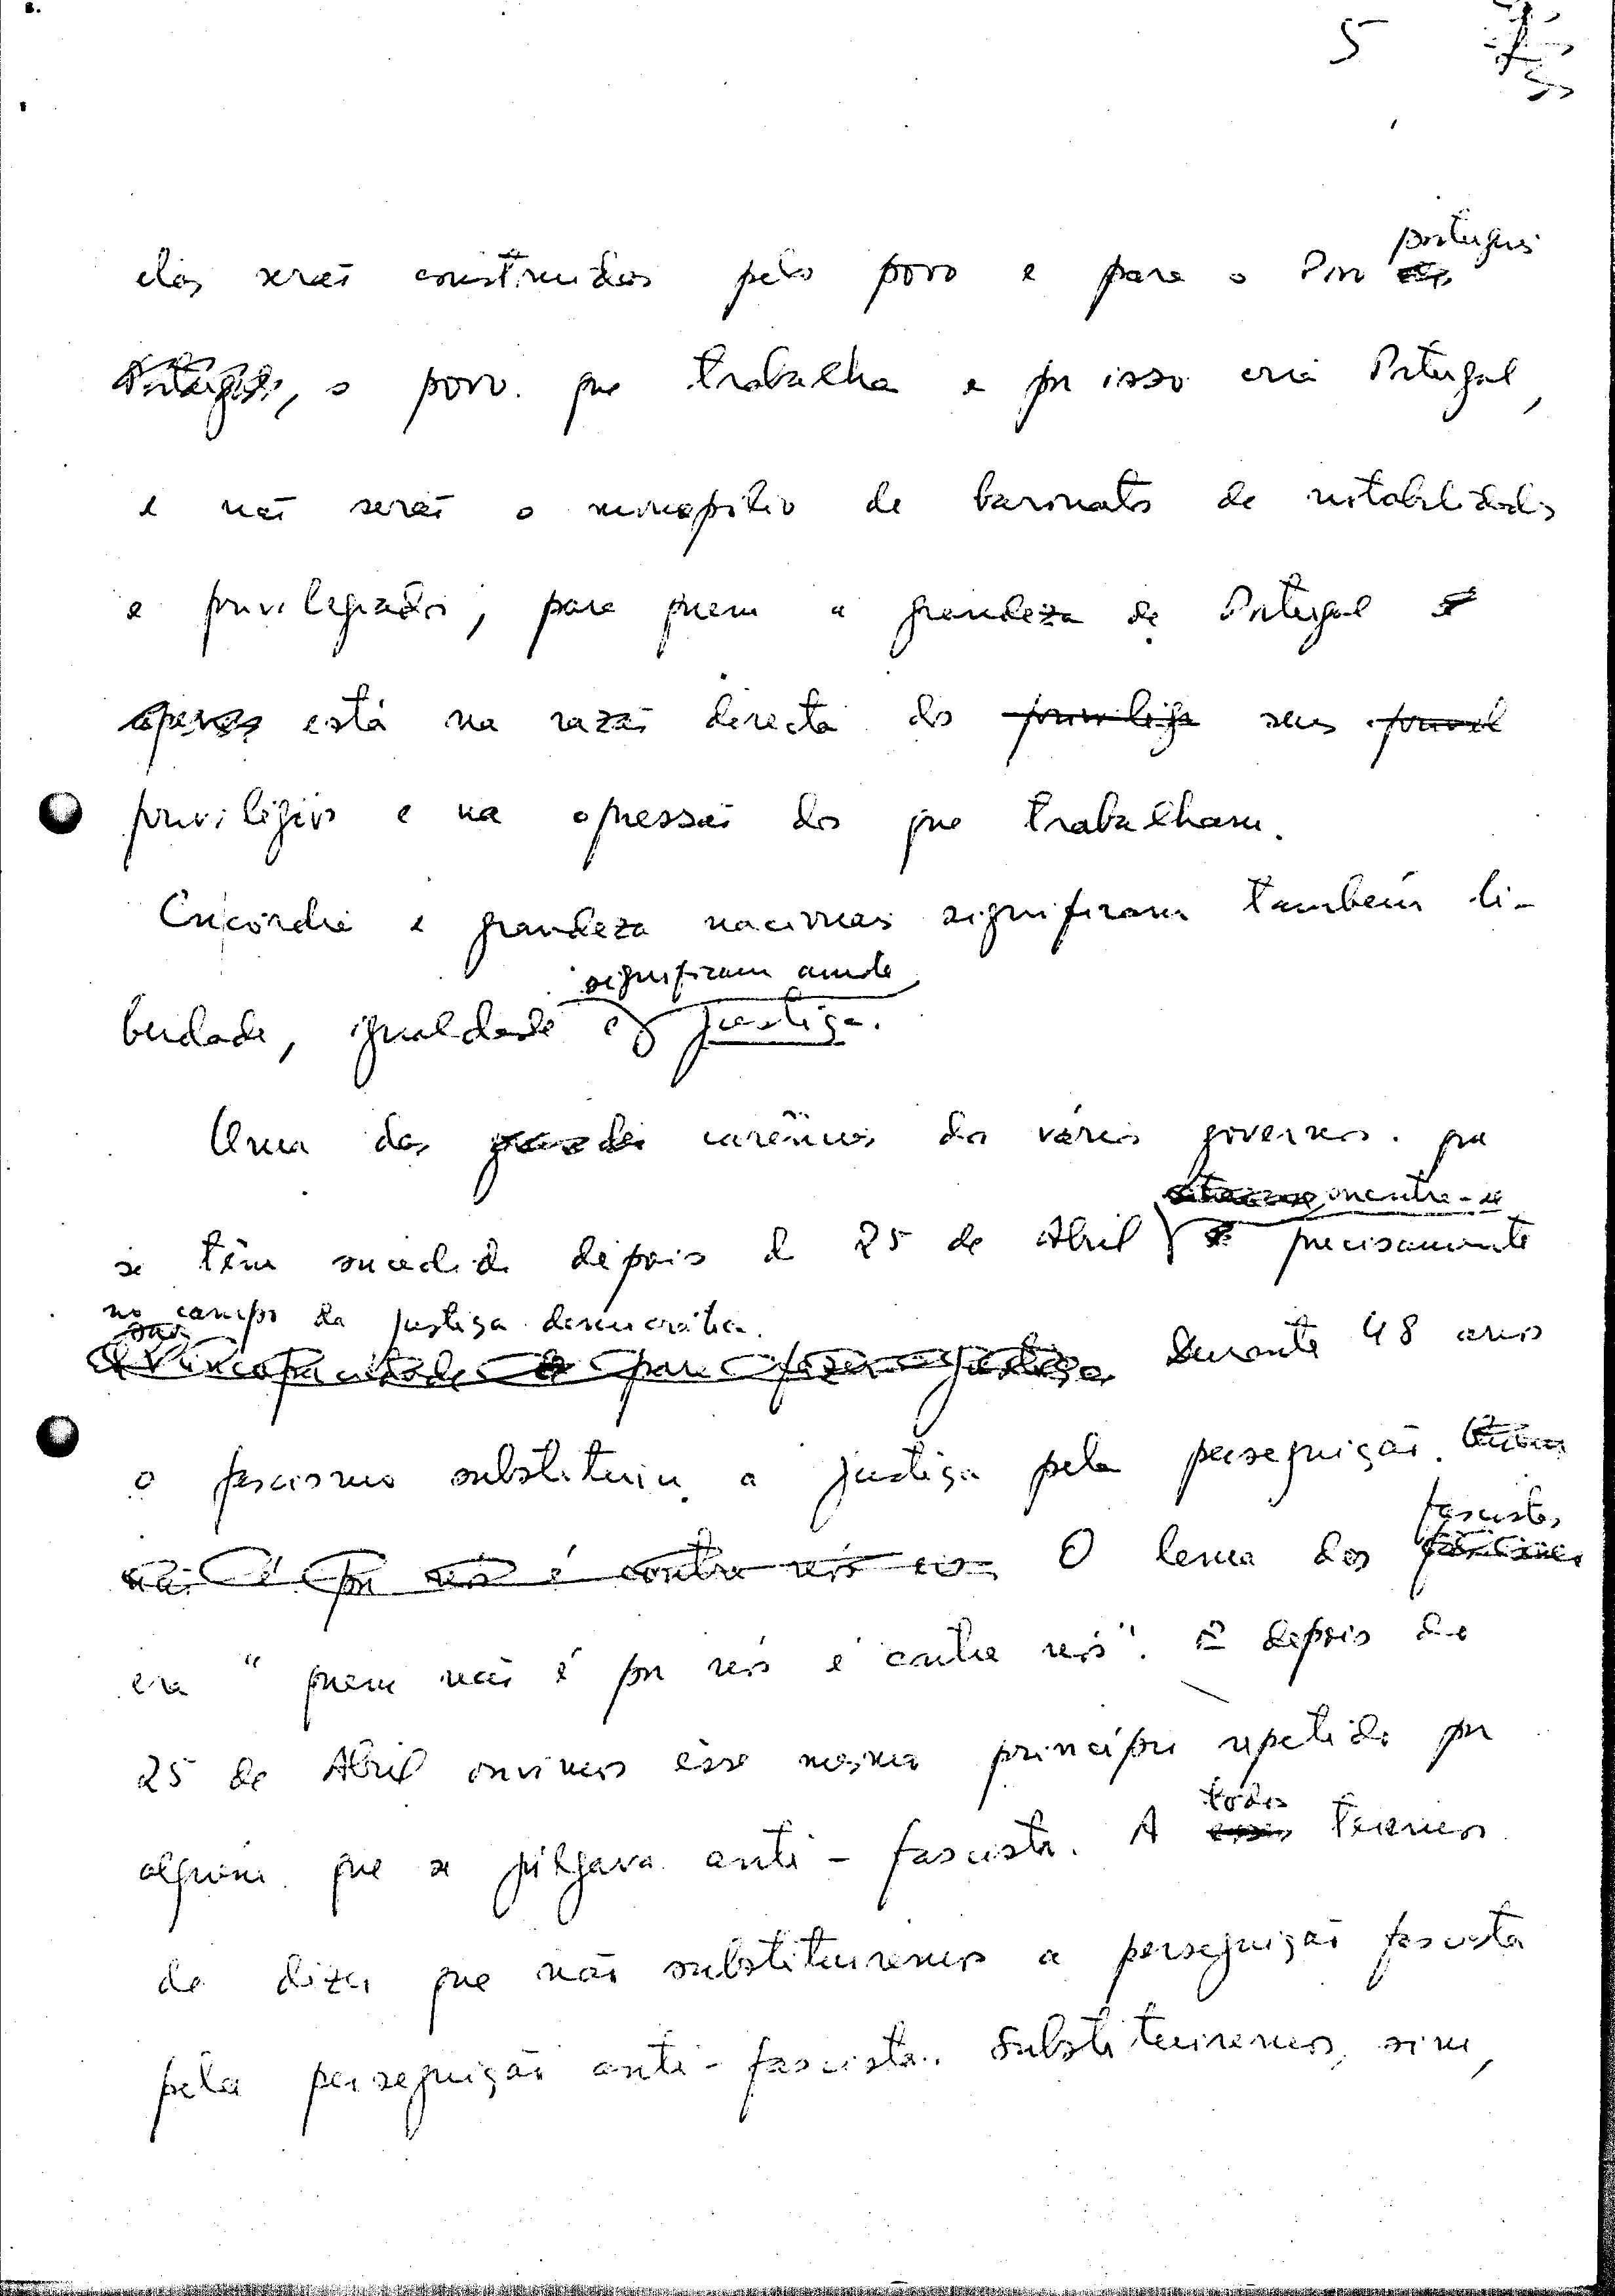 5
português
elas serão construídas pelo povo e para o Povo
Portugal, o povo que trabalha e por isso cria Portugal,
e não serão o monopólio de baronatos de notabilidades
e privilegiados, para quem a grandeza de Portugal
apenas está na razão directa dos privilégi seus privil
privilégios e na opressão dos que trabalham.
Concórdia e grandeza nacionais significam também li-
significam ainda
berdade, igualdade e justiça.
Uma das grandes carências dos vários governos que
encontra-se
se têm sucedido depois do 25 de Abril é precisamente
no campo da justiça democrática.
incapacidade para fazer justiça. Durante 48 anos
o fascismo substituiu a justiça pela perseguição. Quem
não é por nós é contra nós O lema dos
fascistas
era "quem não é por nós é contra nós". E depois do
25 de Abril ouvimos êsse mesmo princípio repetido por
todos
alguém que se julgava anti-fascista. A esses temos
de dizer que não substituiremos a perseguição fascista
pela perseguição anti-fascista. Substituiremos, sim,